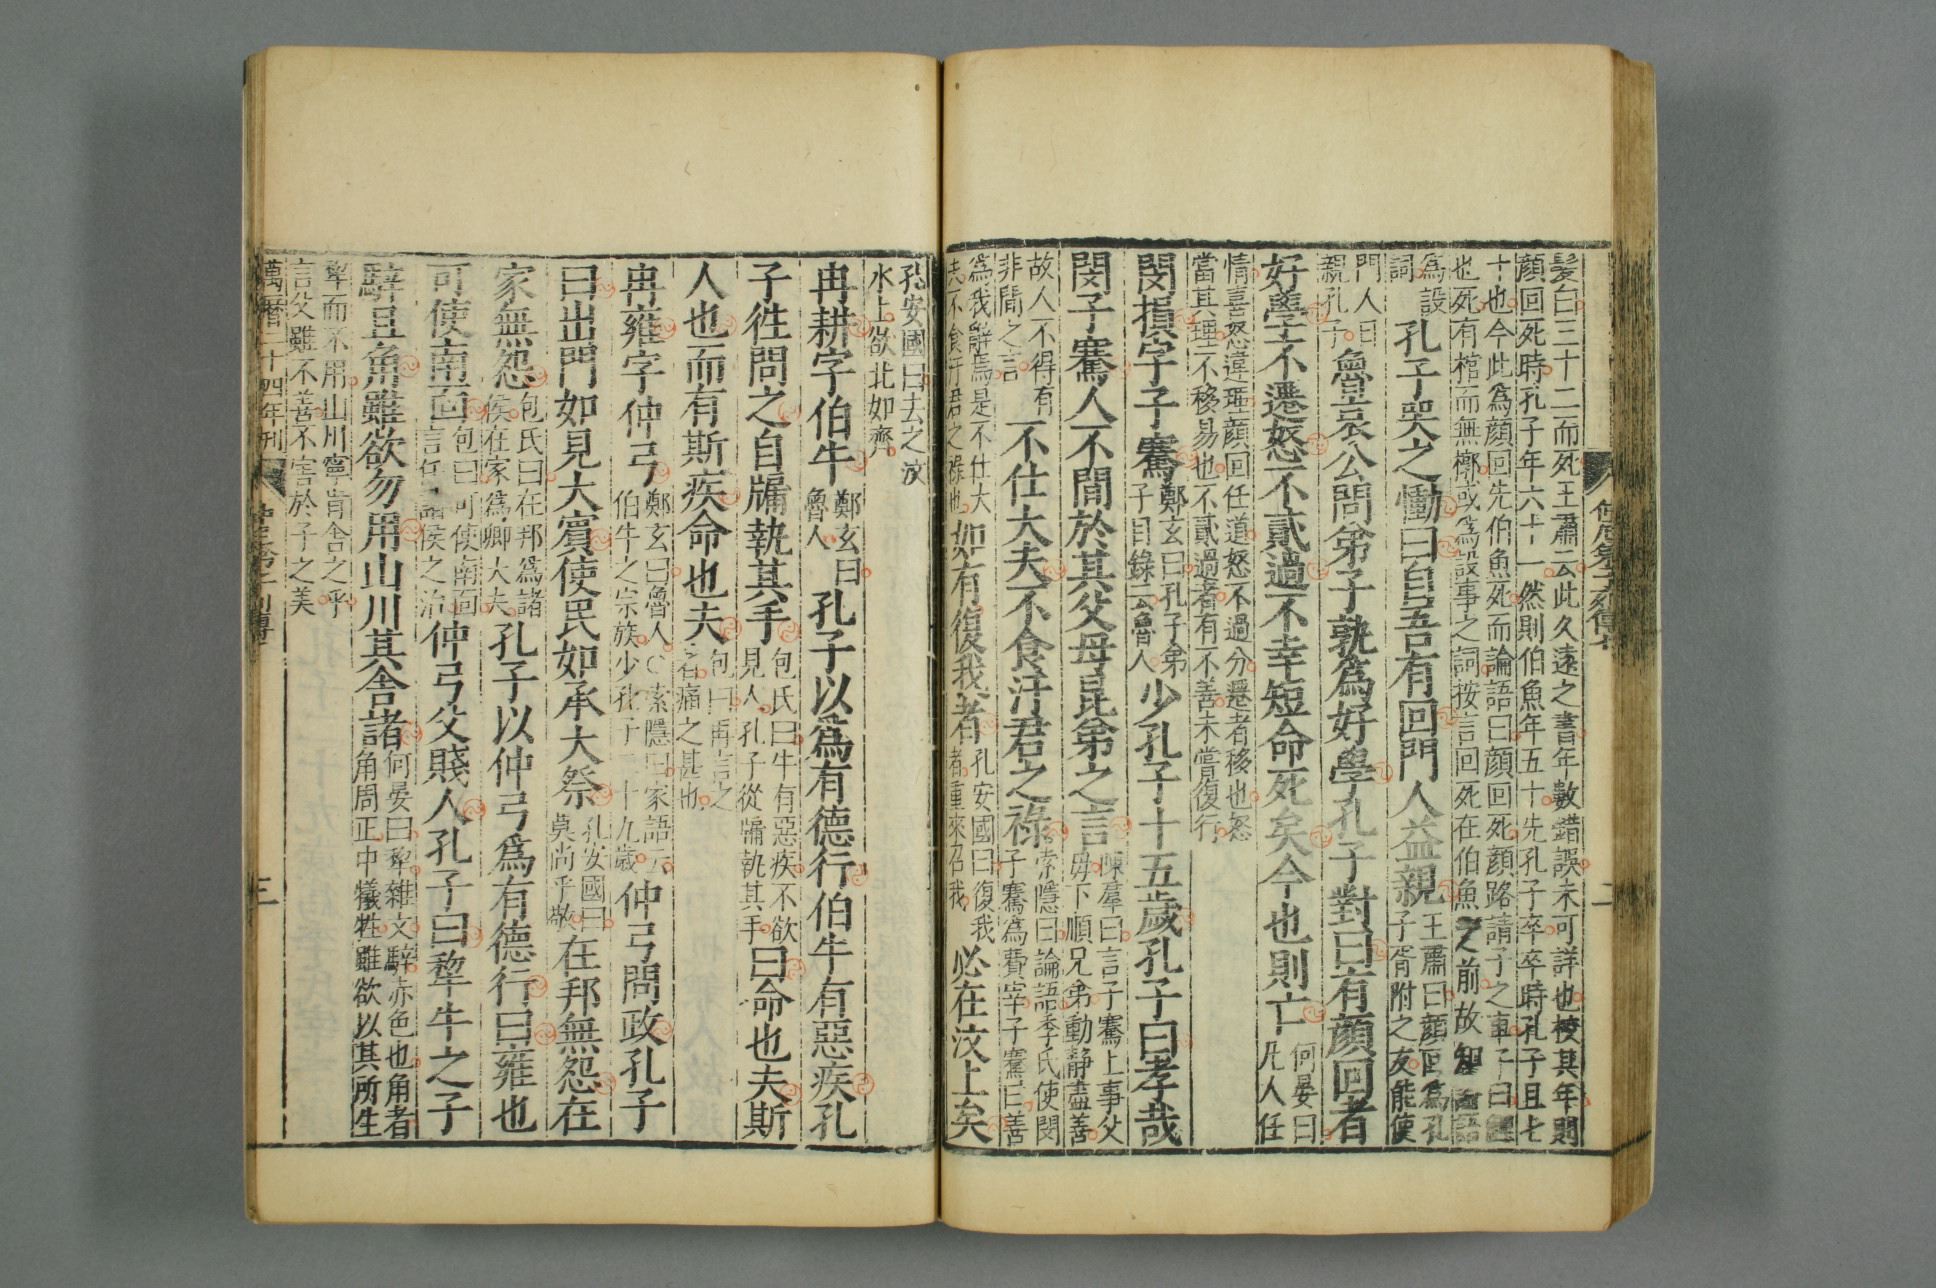 仲尼弟子列傳七
二
髮白三十二而死王肅云此久遠之書年數錯誤未可詳也校其年則
顔回死時孔子年六十一然則伯魚年五十先孔子卒卒時孔子且七
十也今此為顔回先伯魚死而論語曰顔回死顔路請子之車子曰鯉
也死有棺而無槨或為設事之詞按言回死在伯魚之前故知論語
為設詞孔子哭之慟曰自吾有回門人益親王肅曰顔回為孔子胥附之友能使
門人日親孔子魯哀公問弟子孰為好學孔子對曰有顔回者
好學不遷怒不貳過不幸短命死矣今也則亡何晏曰凡人任
情喜怒違理顔回任道怒不過分遷者移也怒
當其理不移易也不貳過者有不善未嘗復行
閔損字子騫鄭玄曰孔子弟子目錄云魯人少孔子十五歲孔子曰孝哉
閔子騫人不間於其父母昆弟之言陳羣曰言子騫上事父母下順兄弟動靜盡善
故人不得有非間之言不仕大夫不食汙君之祿索隱曰論語季氏使閔子騫為費宰子騫曰善
為我辭焉是不仕大夫不食汙君之祿也如有復我者孔安國曰復我者重來召我必在汶上矣
孔安國曰去之汶
水上欲北如齊
冉耕字伯牛鄭玄曰魯人孔子以爲有德行伯牛有惡疾孔
子徃問之自牖執其手包氏曰牛有惡疾不欲見人孔子從牖執其手曰命也夫斯
人也而有斯疾命也夫包曰再言之者痛之甚也
冉雍字仲弓鄭玄曰魯人○索隱曰家語云伯牛之宗族少孔子二十九歲仲弓問政孔子
曰出門如見大賓使民如承大祭孔安國曰莫尚乎敬在邦無怨在
家無怨包氏曰在邦爲諸侯在家爲卿大夫孔子以仲弓爲有德行曰雍也
可使南面包曰可使南面言任諸侯之治仲弓父賤人孔子曰犂牛之子
騂且角雖欲勿用山川其舍諸何晏曰犂雜文騂赤色也角者角周正中犧牲雖欲以其所生
犂而不用山川寧肯舍之乎
言父雖不善不害於子之美
萬曆二十四年刊
三